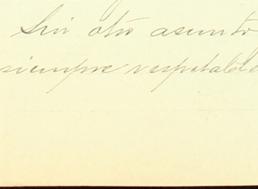 Sin otro asunto
siempre respetable